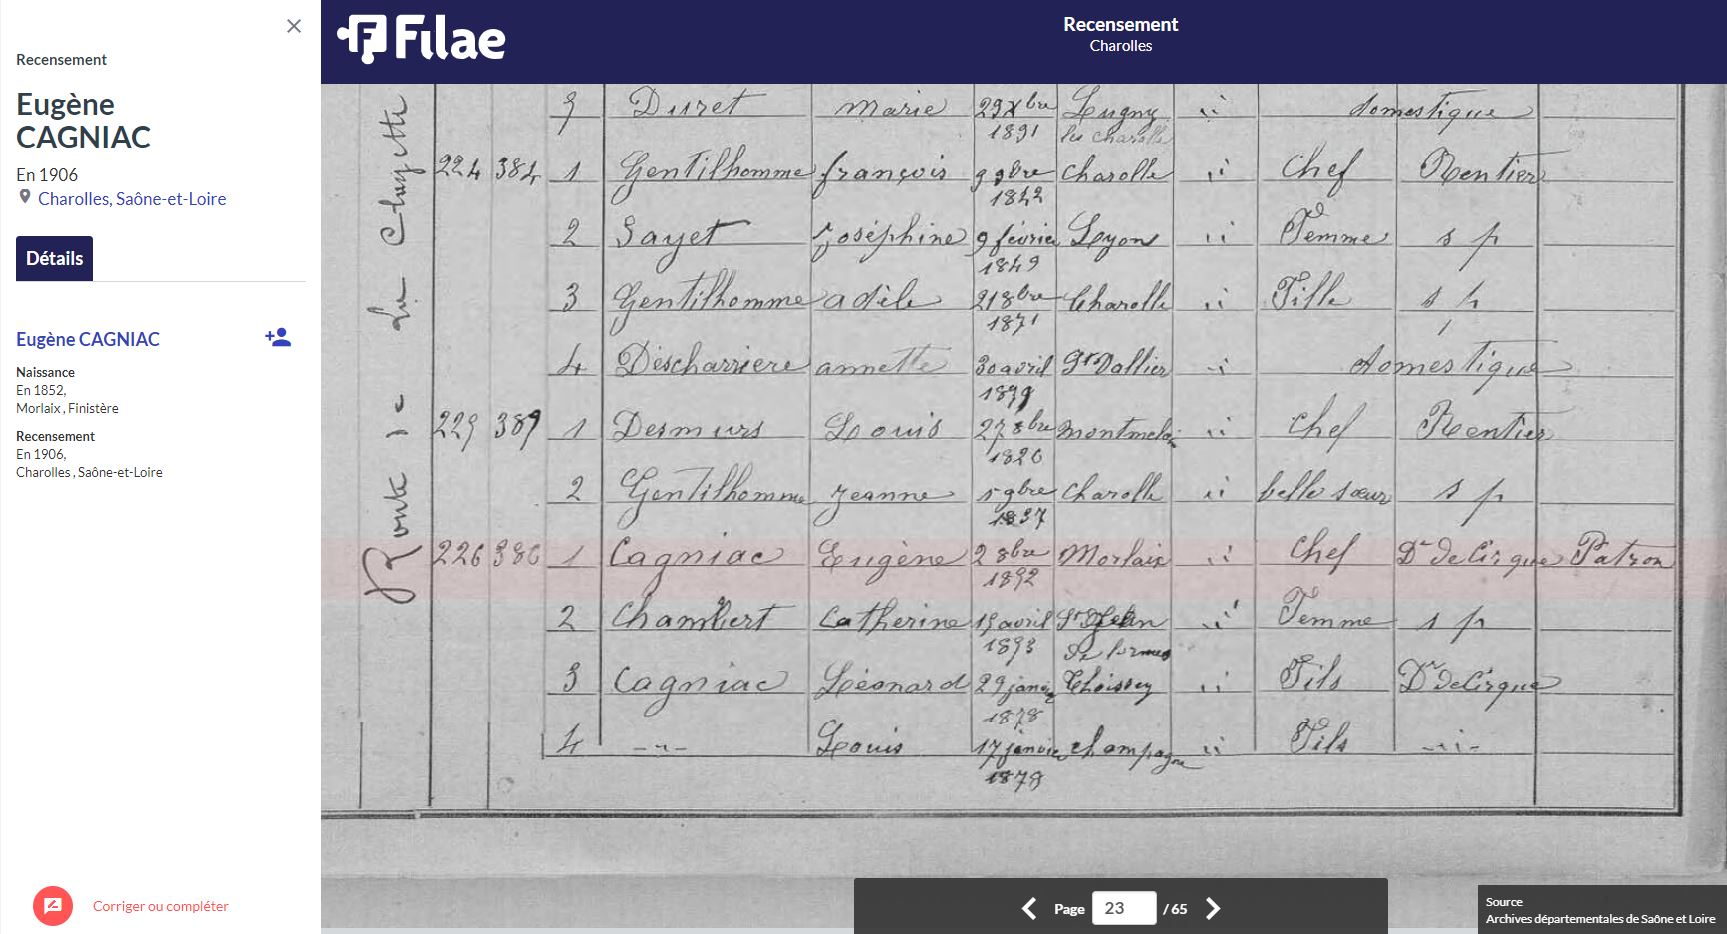 Recensement
Eugène
CAGNIAC
En 1906
Charolles, Saône-et-Loire
Détails
Eugène CAGNIAC
Naissance
En 1852,
Morlaix , Finistère
Recensement
En 1906,
Charolles , Saône-et-Loire
Corriger ou compléter
Filae
Recensement
Charolles
Route de La Clayette
5 Duret marie 29 Xbre Lugny ii domestique
1891 les charolle
224 384 1 Gentilhomme françois 9 9bre Charolle ii Chef Rentier
1842
2 Sayet joséphine 9 février Lyon ii Femme s p
1849
3 Gentilhomme adèle 21 8bre Charolle ii Fille s p
1871
4 Descharriere annette 30 avril St Vallier ii domestique
225 385 1 Desmurs Louis 27 8bre ii chef Rentier
1820
2 Gentilhomme jeanne 9bre Charolle ii belle sœur s p
1837
226 386 1 Cagniac Eugène 2 8bre Morlaix ii Chef Dr De Cirque Patron
1852
2 Chambert Catherine 15 avril St ii Femme s p
1853
3 Cagniac Léonard 29 janvier Thoissey ii Fils Dr De Cirque
1878
4 -"- Louis 17 janvier champagne ii Fils -ii-
1879
Page 23 / 65
Source
Archives départementales de Saône et Loire